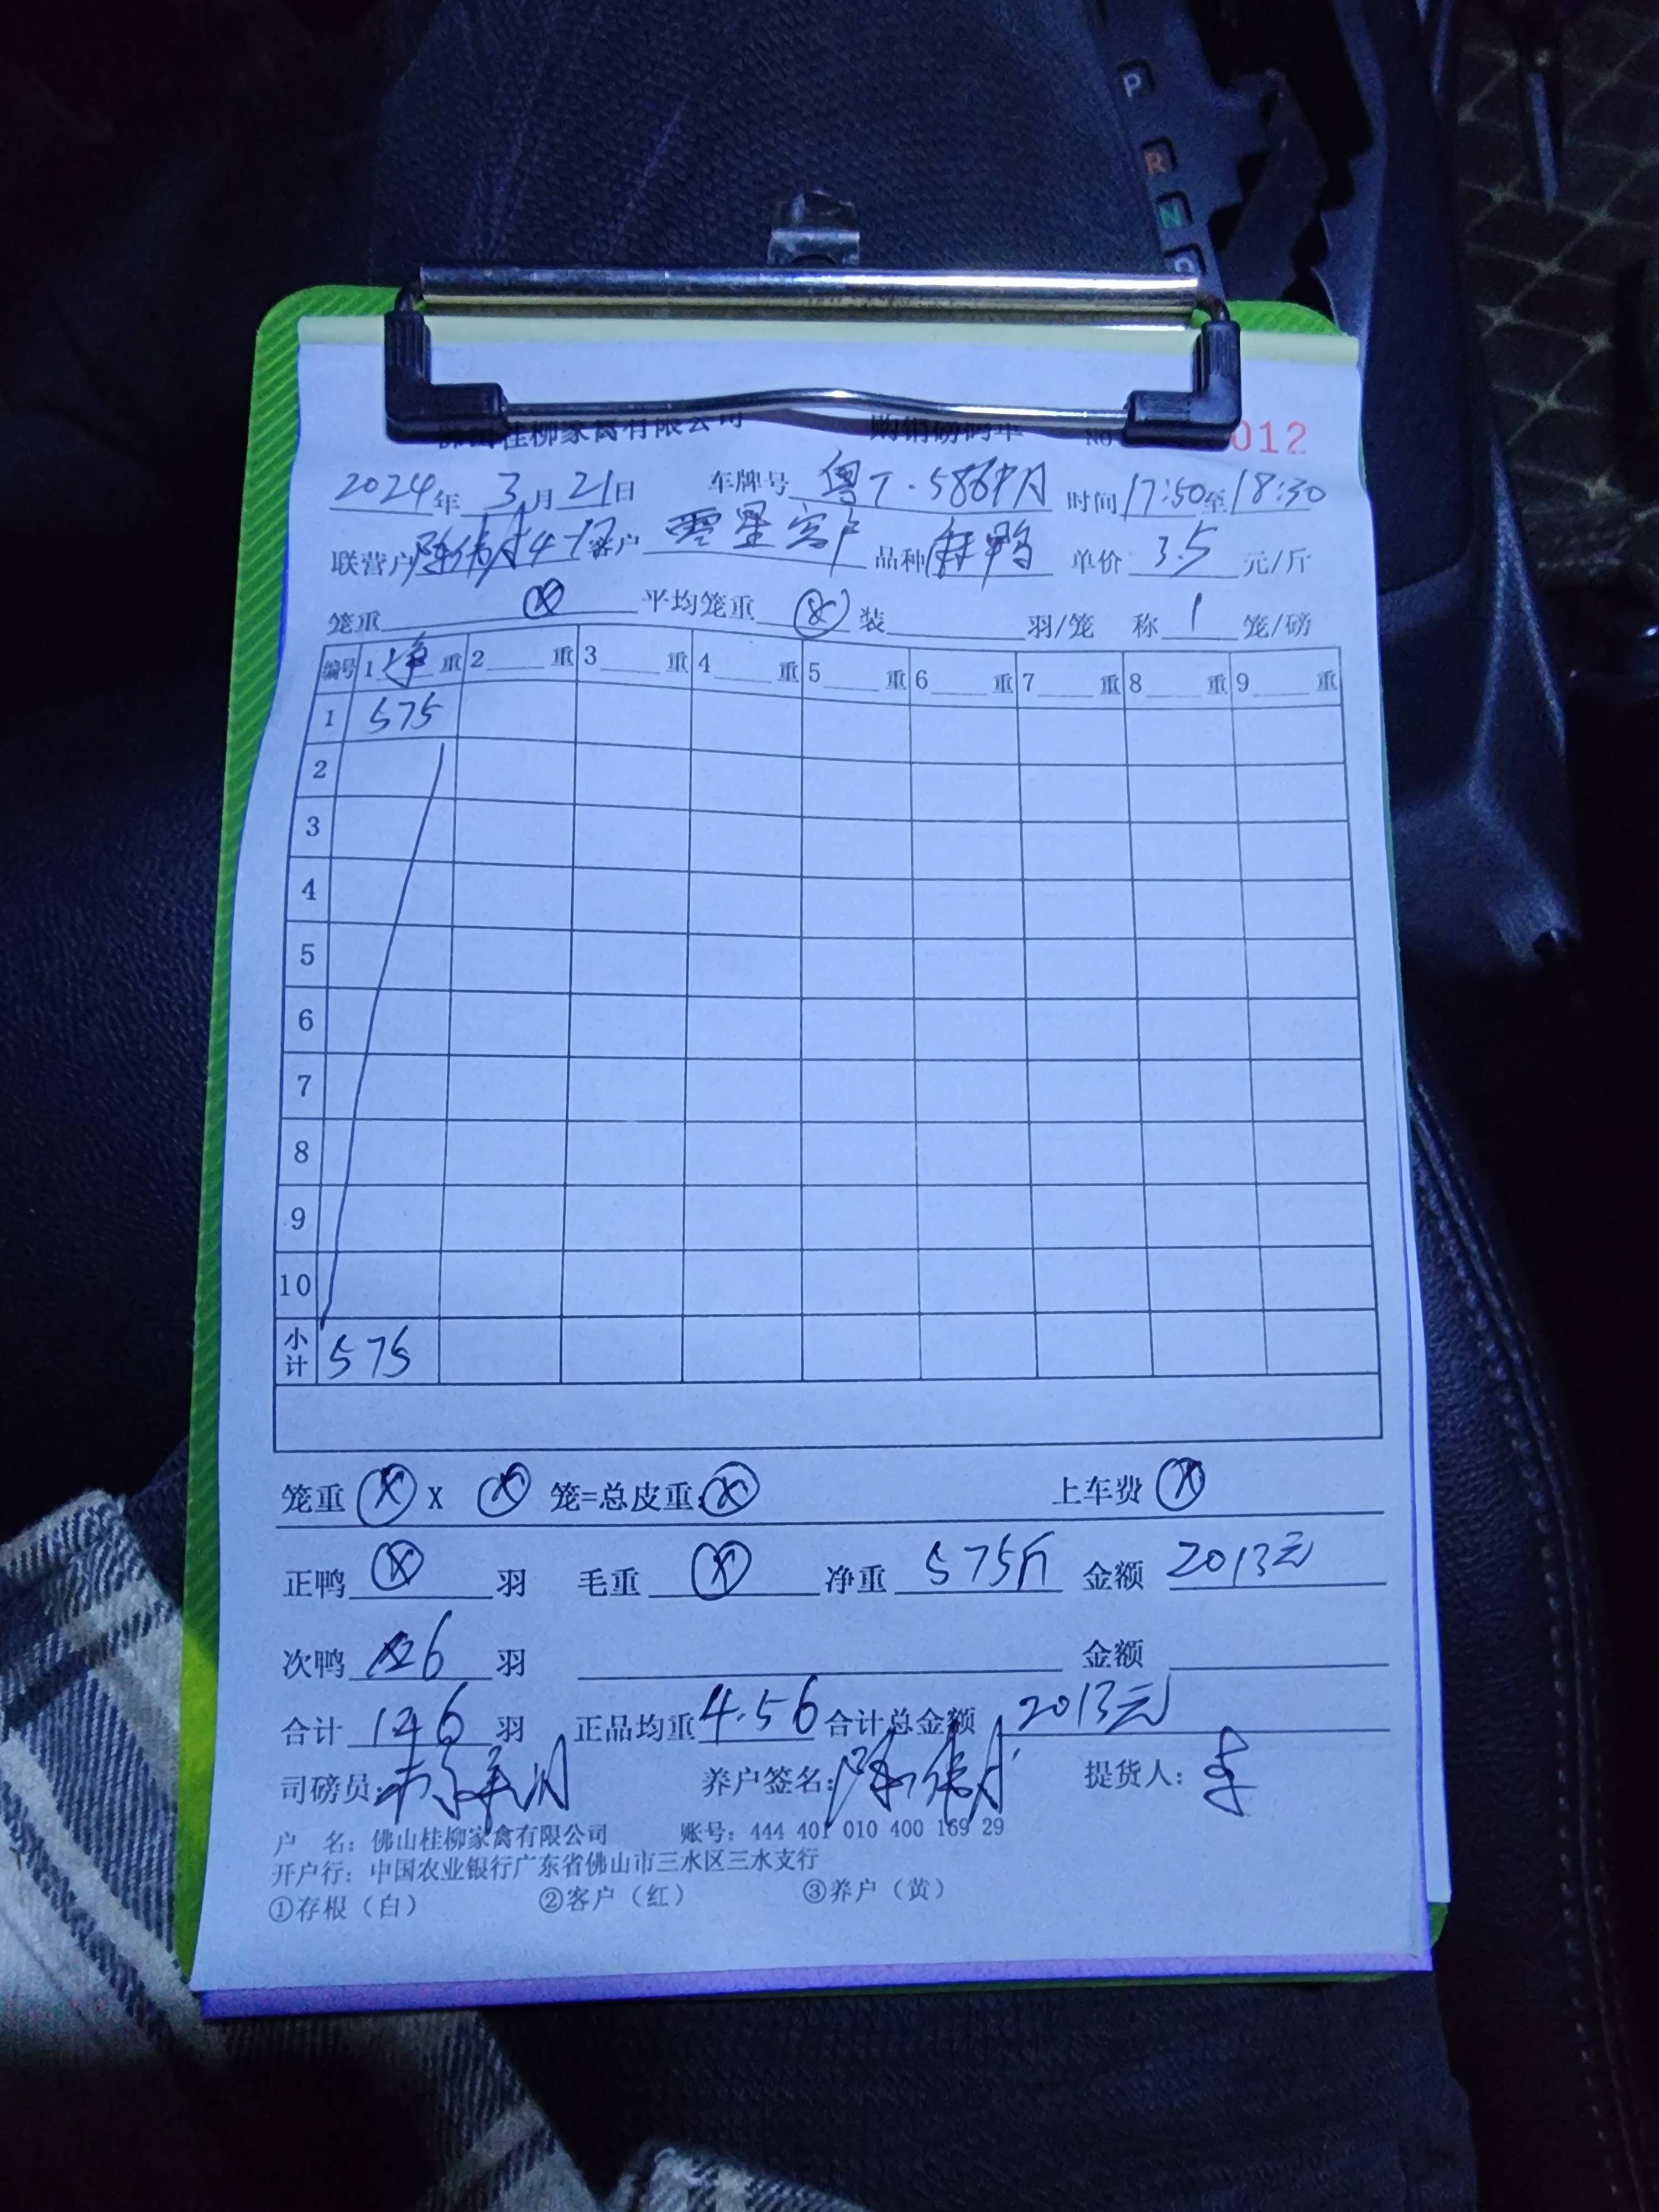 P
R
N
佛山桂柳家禽有限公司 购销磅码单 NO 012
2024年 3月21日 车牌号 粤T· 时间17:50至18:30
联营户 客户 零星客户 品种 麻鸭 单价 3.5 元/斤
笼重 ⓧ 平均笼重 ⓧ 装 羽/笼 称 1 笼/磅
编号 1 净 重 2 重 3 重 4 重 5 重 6 重 7 重 8 重 9 重
1 575
2
3
4
5
6
7
8
9
10
小计 575
笼重 ⓧ x ⓧ 笼=总皮重: ⓧ 上车费 ⓧ
正鸭 ⓧ 羽 毛重 ⓧ 净重 575斤 金额 2013元
次鸭 26 羽 金额
合计 126 羽 正品均重 4.56 合计总金额 2013元
司磅员: 养户签名: 提货人: 李
户 名: 佛山桂柳家禽有限公司 账号: 444 401 010 400 169 29
开户行: 中国农业银行广东省佛山市三水区三水支行
①存根（白） ②客户（红） ③养户（黄）